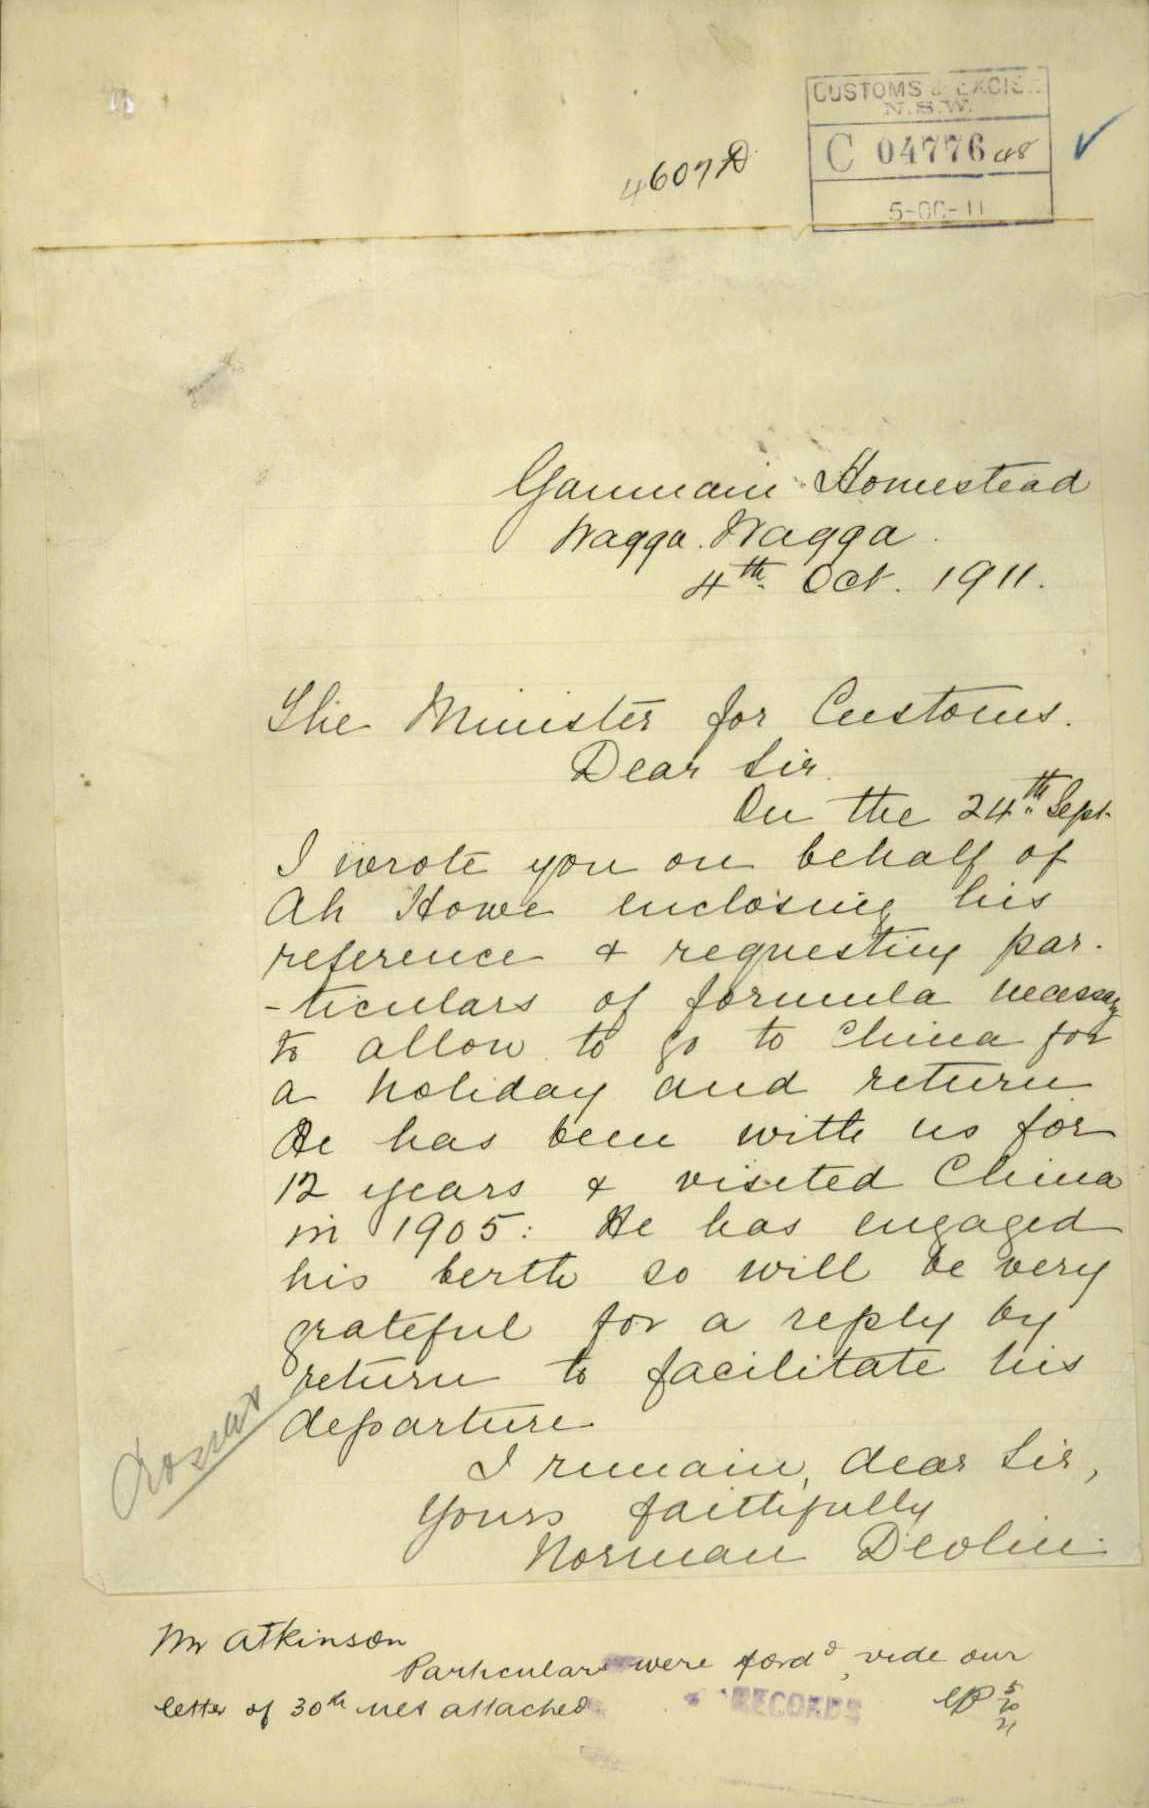 CUSTOMS & EXCISE
N.S.W.
C 04776
4607
5-OC-11
Ganmain Homestead
Wagga. Wagga.
4th Oct. 1911.
The Minister for Customs.
Dear Sir.
On the 24th Sept.
I wrote you on behalf of
Ah Howe enclosing his
reference & requesting par-
-ticulars of formula necessary
to allow to go to China for
a holiday and return
He has been with us for
12 years & visited China
in 1905: He has engaged
his berth so will be very
grateful for a reply by
return to facilitate his
departure
I remain, dear Sir,
Yours faithfully
Norman Devlin.
Mr Atkinson
Particulars were ford, vide our
letter of 30th ult attached
RECORDS